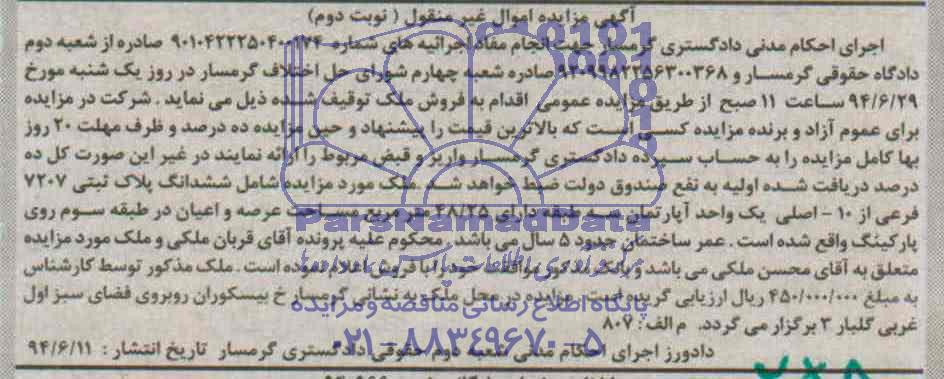 آگهی مزایده اموال غیر منقول ( نوبت دوم)
اجرای احکام مدنی دادگستری گرمسار جهت انجام مفاد اجرائیه های شماره صادره از شعبه دوم
دادگاه حقوقی گرمسار و صادره شعبه چهارم شورای حل اختلاف گرمسار در روز یک شنبه مورخ
۹۴/۶/۲۹ ساعت ۱۱ صبح از طریق مزایده عمومی اقدام به فروش ملک توقیف شده ذیل می نماید . شرکت در مزایده
برای عموم آزاد و برنده مزایده کسی است که بالاترین قیمت را پیشنهاد و حین مزایده ده درصد و ظرف مهلت ۲۰ روز
بها کامل مزایده را به حساب سپرده دادگستری گرمسار واریز و قبض مربوط را ارائه نمایند در غیر این صورت کل ده
درصد دریافت شده اولیه به نفع صندوق دولت ضبط خواهد شد .ملک مورد مزایده شامل ششدانگ پلاک ثبتی ۷۲۰۷
فرعی از ۱۰ - اصلی یک واحد آپارتمان سه طبقه دارای ۴۸/۲۵ متر مربع مساحت عرصه و اعیان در طبقه سوم روی
پارکینگ واقع شده است . عمر ساختمان حدود ۵ سال می باشد . محکوم علیه پرونده آقای قربان ملکی و ملک مورد مزایده
متعلق به آقای محسن ملکی می باشد و مالک مذکور موافقت خود را با فروش اعلام نموده است . ملک مذکور توسط کارشناس
به مبلغ ۴۵۰/۰۰۰/۰۰۰ ریال ارزیابی گردیده است . مزایده در محل ملک به نشانی گرمسار خ بیسکوران روبروی فضای سبز اول
غربی گلبار ۳ برگزار می گردد. م الف: ۸۰۷
دادورز اجرای احکام مدنی شعبه دوم حقوقی دادگستری گرمسار تاریخ انتشار : ۹۴/۶/۱۱
ParsNamadData
پایگاه اطلاع رسانی مناقصه و مزایده
۰۲۱-۸۸۳۴۹۶۷۰-۵